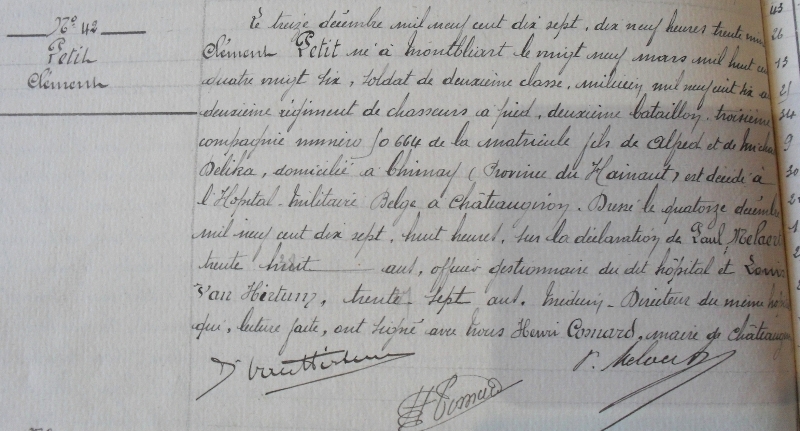 N° 42
Petit
Clément
Le treize décembre mil neuf cent dix sept, dix neuf heures trente
Clément Petit né à Montbliart le vingt neuf mars mil huit cent
quatre vingt six, soldat de deuxième classe, milicien mil neuf cent six au
deuxième régiment de chasseurs a pied, deuxième bataillon, troisième
compagnie numéro 50664 de la matricule fils de Alfred et de
Délika, domicilié a Chimay (Province du Hainaut) est décédé à
l'Hopital-Militaire Belge a Châteaugiron. Dressé le quatorze décembre
mil neuf cent dix sept, huit heures, sur la déclaration de Paul, Melaert
trente huit ans, officier gestionnaire du dit hôpital et Louis
Van Hirtum, trente sept ans, Médecin-Directeur du même
qui, lecture faite, ont signé avec Nous Henri Comard, maire de Châteaugiron
Dr Van Hirtum
P. Melaert
H Comard
43
26
13
21
34
9
30